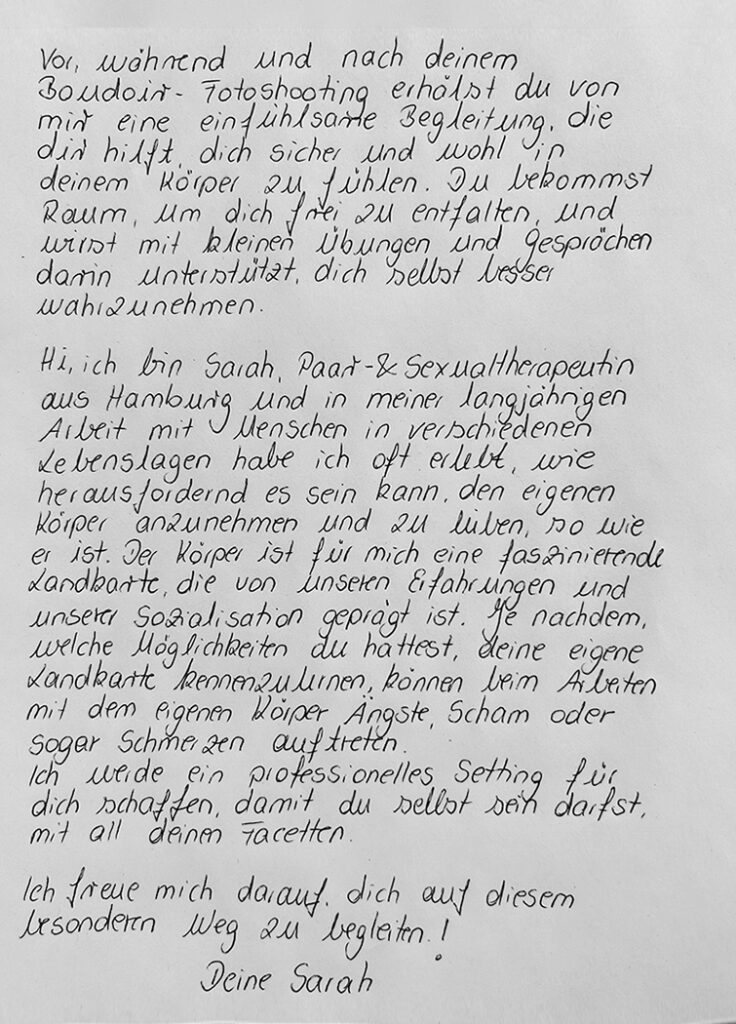 Vor, während und nach deinem
Boudoir-Fotoshooting erhälst du von
mir eine einfühlsame Begleitung, die
dir hilft, dich sicher und wohl in
deinem Körper zu fühlen. Du bekommst
Raum, um dich frei zu entfalten, und
wirst mit kleinen Übungen und Gesprächen
darin unterstützt, dich selbst besser
wahrzunehmen.
Hi, ich bin Sarah, Paar-&Sexualtherapeutin
aus Hamburg und in meiner langjährigen
Arbeit mit Menschen in verschiedenen
Lebenslagen habe ich oft erlebt, wie
herausfordernd es sein kann, den eigenen
Körper anzunehmen und zu lieben, so wie
er ist. Der Körper ist für mich eine faszinierende
Landkarte, die von unseren Erfahrungen und
unserer Sozialisation geprägt ist. Je nachdem,
welche Möglichkeiten du hattest, deine eigene
Landkarte kennenzulernen, können beim Arbeiten
mit dem eigenen Körper Ängste, Scham oder
sogar Schmerzen auftreten.
Ich werde ein professionelles Setting für
dich schaffen, damit du selbst sein darfst,
mit all deinen Facetten.
Ich freue mich darauf, dich auf diesem
besonderen Weg zu begleiten!
Deine Sarah